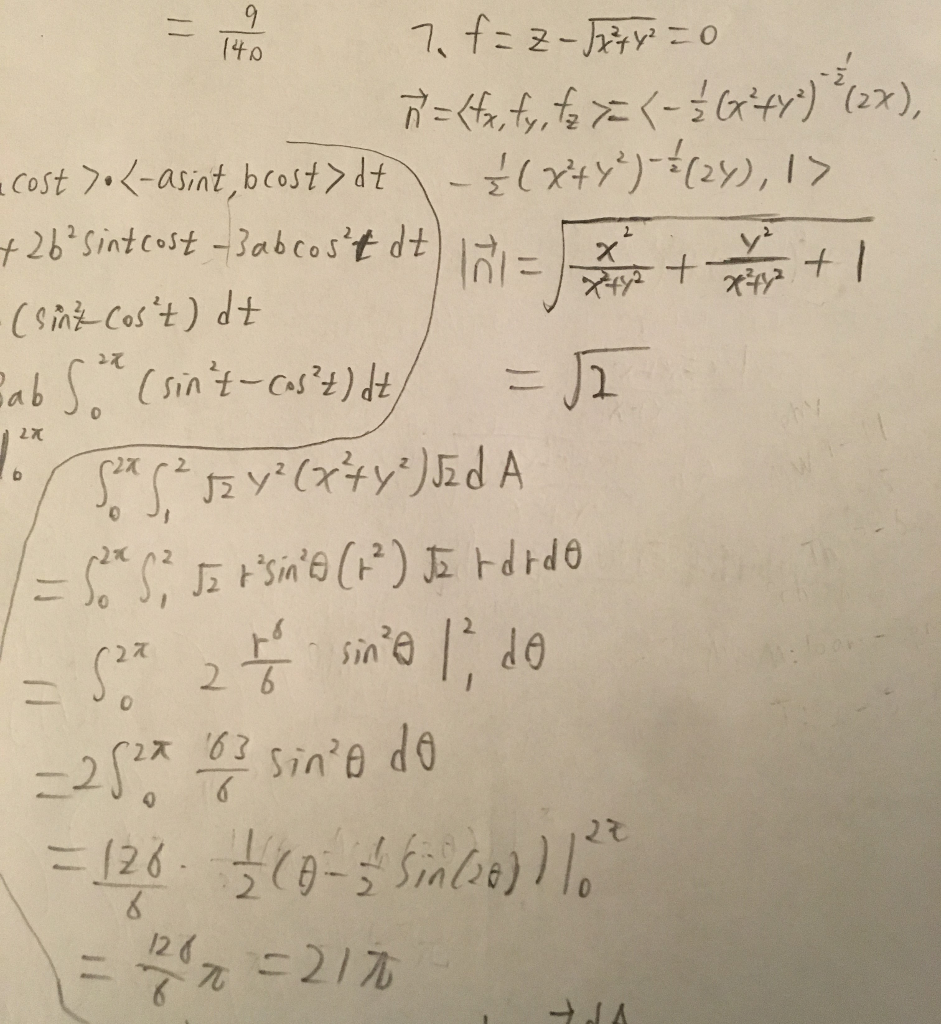 = 9/140
7、f = z - √(x²+y²) = 0
n⃗ = <fx, fy, fz> = <-1/2 (x²+y²)^(-1/2) (2x),
-1/2 (x²+y²)^(-1/2) (2y), 1>
|n⃗| = √(x²/(x²+y²) + y²/(x²+y²) + 1)
= √2
cost>·<-asint, bcost> dt
+ 2b² sint cost - 3ab cos²t dt
(sin²t - cos²t) dt
ab ∫₀^2π (sin²t - cos²t) dt
|₀^2π
∫₀^2π ∫₁² √2 y² (x²+y²) √2 dA
= ∫₀^2π ∫₁² √2 r² sin²θ (r²) √2 r dr dθ
= ∫₀^2π 2 r⁶/6 sin²θ |₁² dθ
= 2 ∫₀^2π 63/6 sin²θ dθ
= 126/6 · 1/2 (θ - 1/2 sin(2θ)) |₀^2π
= 126/6 π = 21π